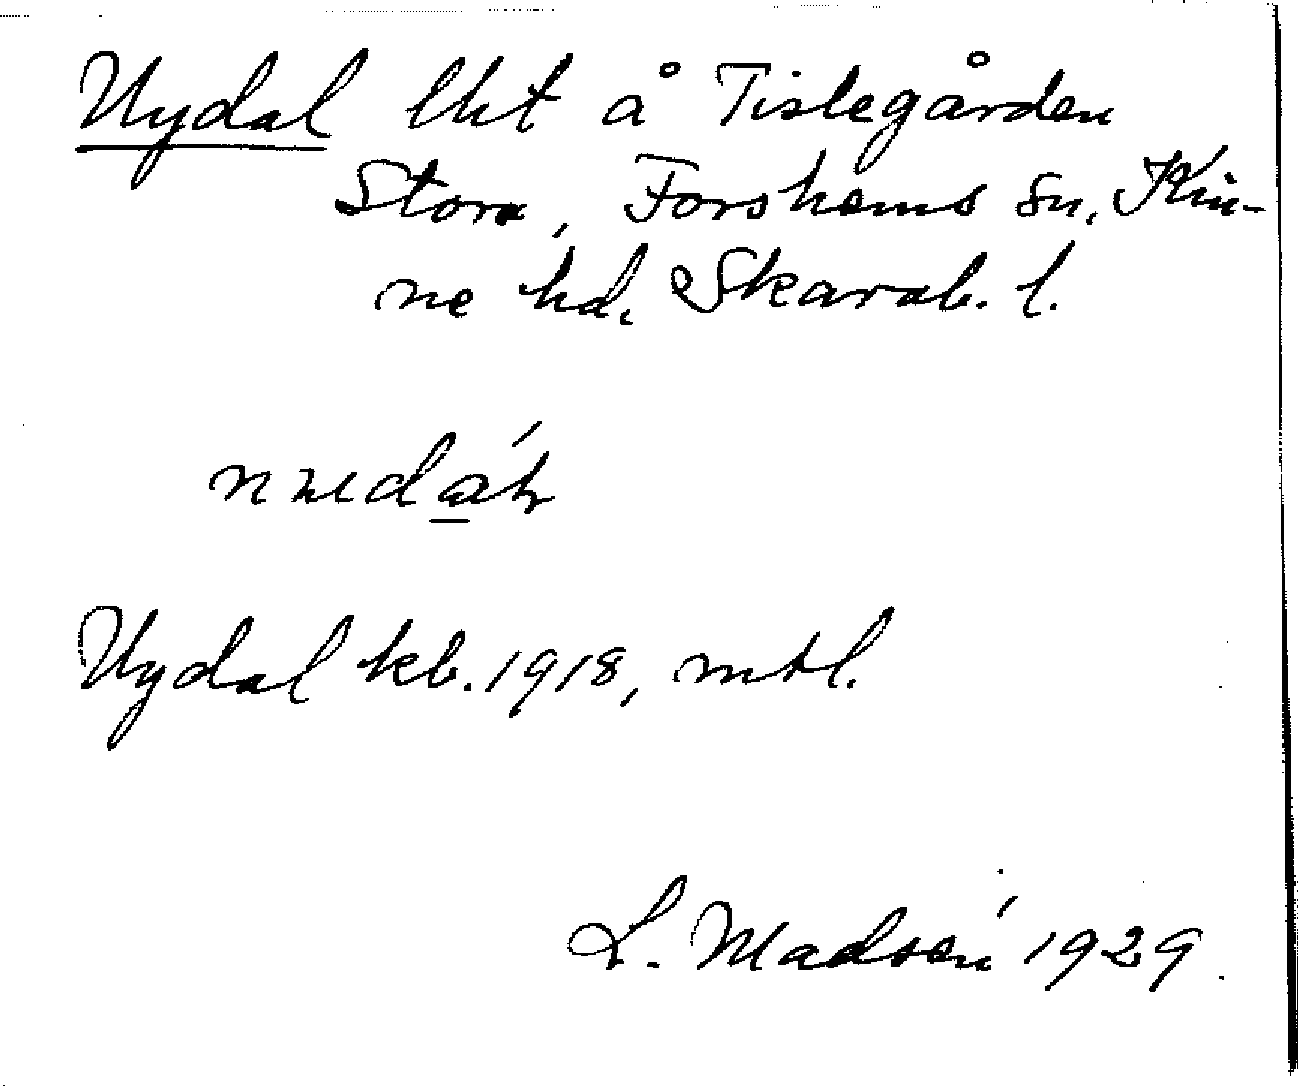 Nydal lht å Tislegården
Stora, Forshems sn, Kin-
ne hd, Skarab. l.
Nydal kb. 1918, mtl.
L. Madsén 1929